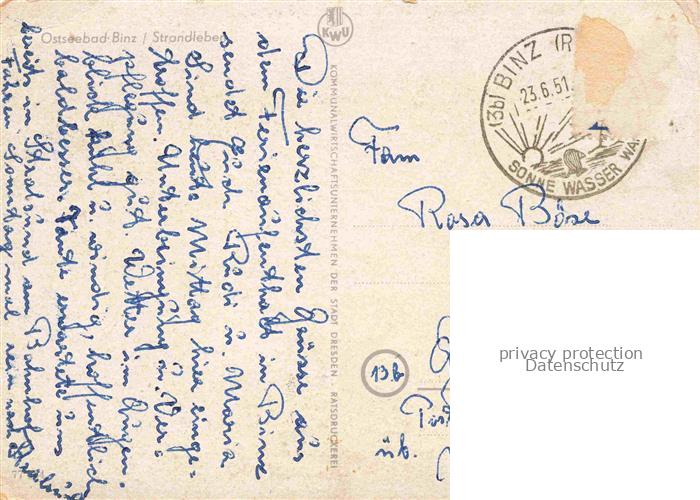 Ostseebad Binz / Strandleben
KWU
KOMMUNALWIRTSCHAFTSUNTERNEHMEN DER STADT DRESDEN RATSDRUCKEREI
Die herzlichsten Grüsse aus
dem Ferienaufenthalt in Binz
sendet Euch Rudi u. Maria
Sind heute Mittag hier einge=
troffen. Unterbringung u. Ver=
pflegung gut. Wetter im Augen=
blick kühl u. windig, hoffentlich
bald besser. Tante erwartete uns
bereits in Stralsund am Bahnhof
Fahren Sonntag mal rein nach
(3b) BINZ (R
23.6.51.
SONNE WASSER WA
Fam
Rosa Böse
13b
Post
üb.
privacy protection
Datenschutz